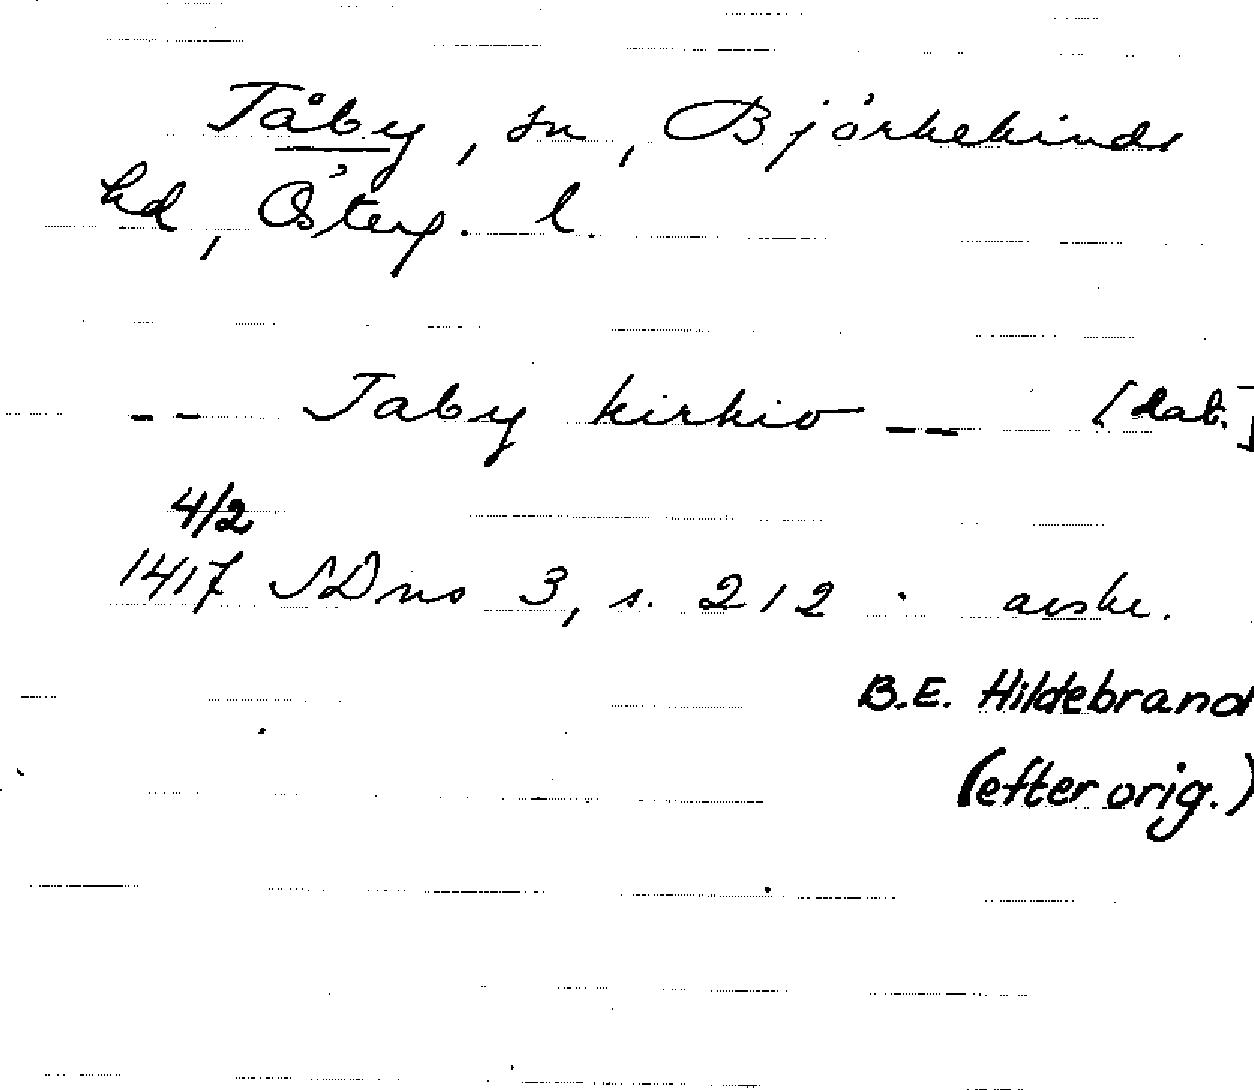 Tåby, sn, Björkekinds
hd, Österg. l.
-- Taby kirkio -- [dat.]
4/2
1417 SDns 3, s. 212 avskr.
B.E. Hildebrand
(efter orig.)